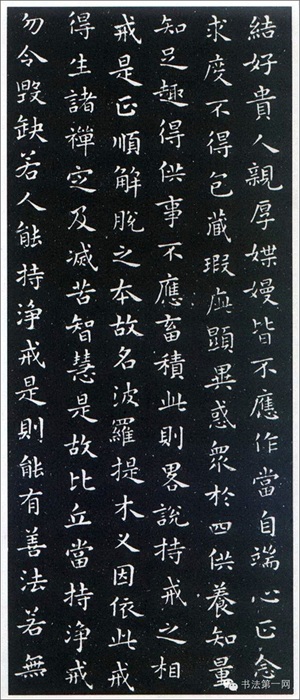 結好貴人親厚媟嫚皆不應作當自端心正念
求度不得包藏瑕疵顯異惑衆於四供養知量
知足趣得供事不應畜積此則畧說持戒之相
戒是正順解脫之本故名波羅提木叉因依此戒
得生諸禪定及滅苦智慧是故比丘當持淨戒
勿令毀缺若人能持淨戒是則能有善法若無
书法第一网